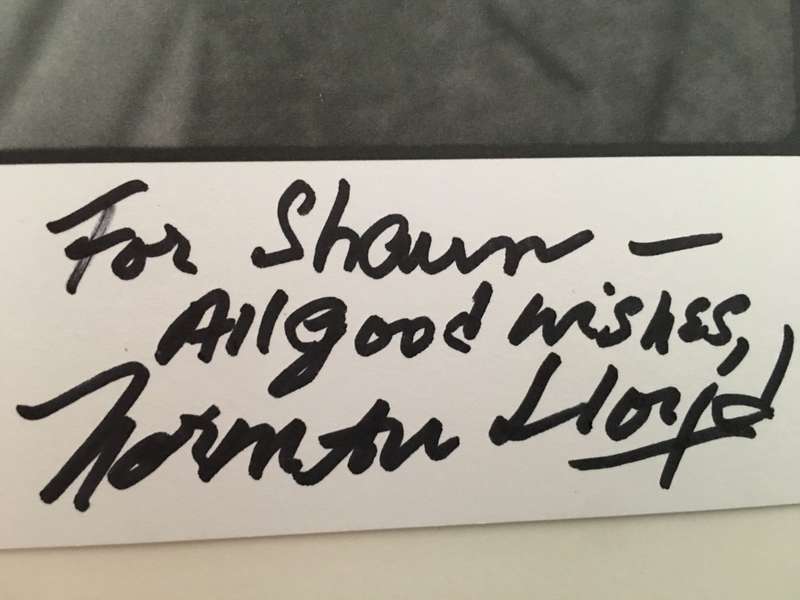 For Shaun —
All good wishes,
Norman Lloyd